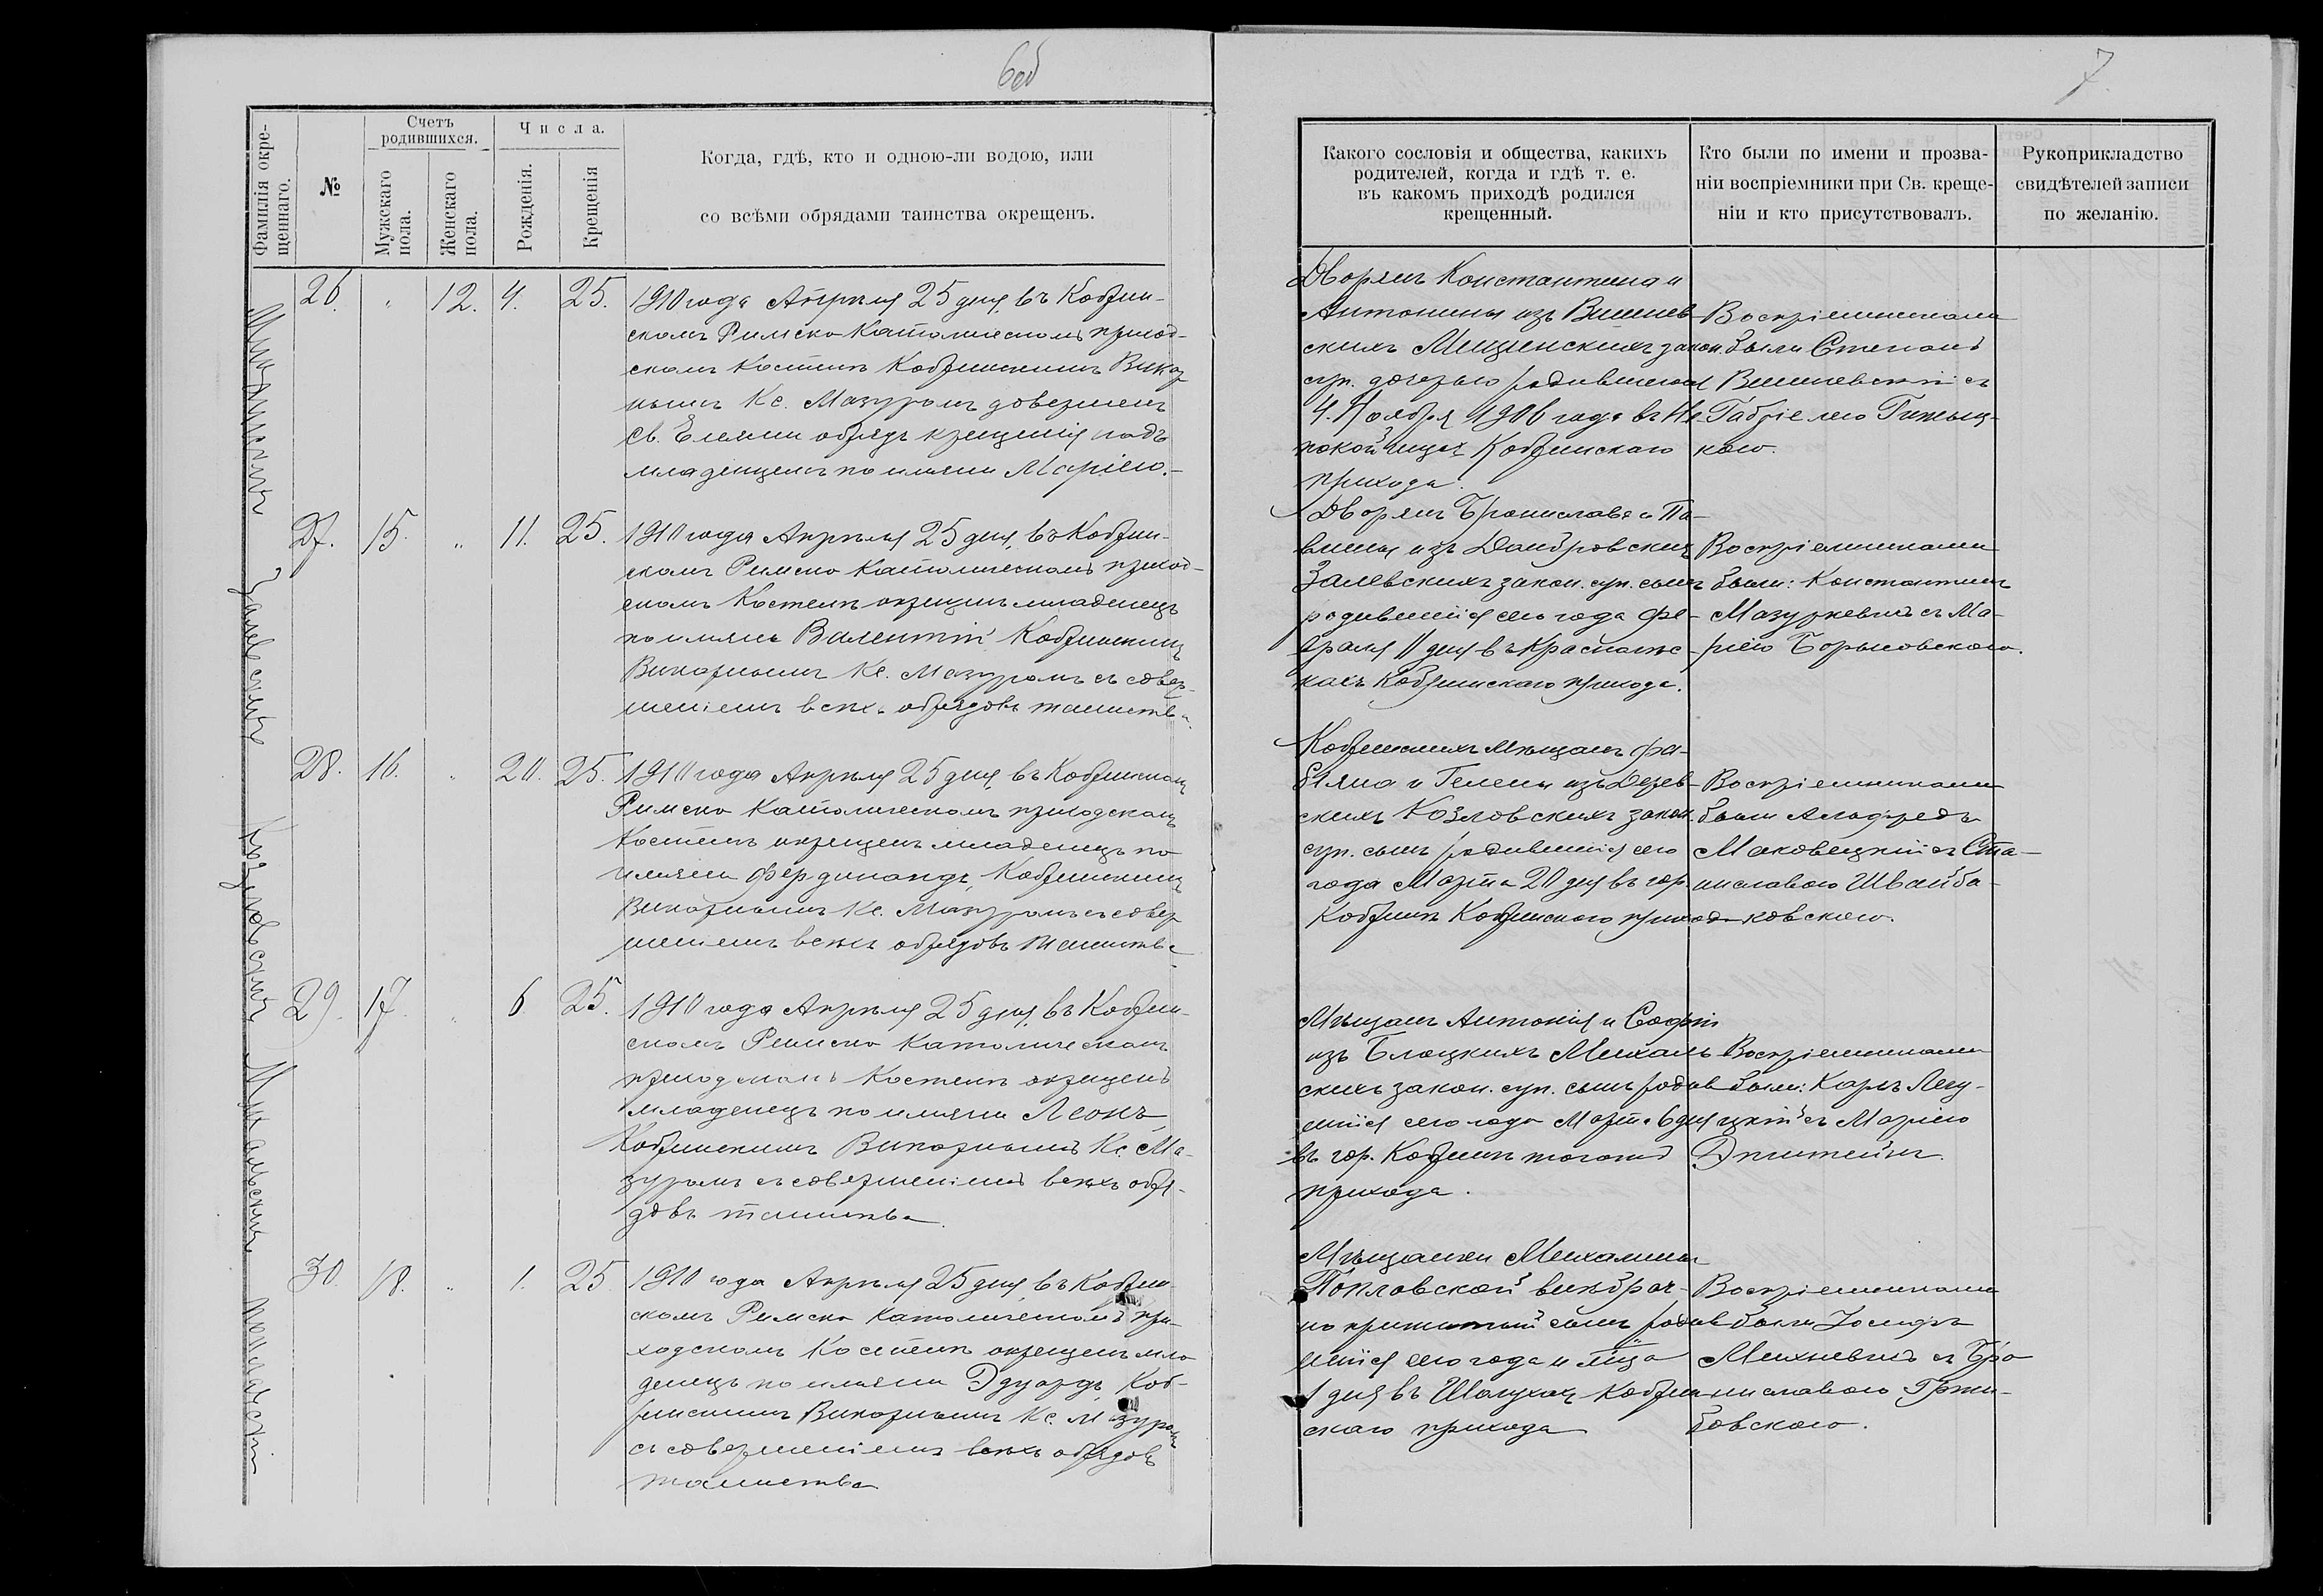 6об
Фамилія окре-
щеннаго.
№
Счетъ
родившихся.
Мужскаго
пола.
Женскаго
пола.
Числа.
Рожденія.
Крещенія
Когда, гдѣ, кто и одною-ли водою, или
со всѣми обрядами таинства окрещенъ.
26. " 12. 4. 25.
1910 года Апрѣля 25 дня, въ Кобрин-
скомъ Римско Католическомъ приход-
скомъ Костелѣ Кобринскимъ Викар
нымъ Кс. Мазуромъ довершенъ
Св. Елеями обрядъ крещенія надъ
младенцемъ по имяни Маріею.-
Залевскій
27. 15. " 11. 25.
1910 года Апрѣля 25 дня, въ Кобрин-
скомъ Римско Католическомъ приход-
скомъ Костелѣ окрещенъ младенецъ
по имяни Валентій Кобринскимъ
Викарнымъ Кс. Мазуромъ съ совер-
шеніемъ всѣхъ обрядовъ таинства.
Козловскій
28. 16. " 20. 25.
1910 года Апрѣля 25 дня, въ Кобринскомъ
Римско Католическомъ приходскомъ
Костелѣ окрещенъ младенецъ по
имяни Фердинандъ, Кобринскимъ
Викарнымъ Кс. Мазуромъ съ совер
шеніемъ всѣхъ обрядовъ таинства
Михальскій
29. 17. " 6 25.
1910 года Апрѣля 25 дня, въ Кобрин-
скомъ Римско Католическомъ
приходскомъ Костелѣ окрещенъ
младенецъ по имяни Леонъ
Кобринскимъ Викарнымъ Кс. Ма-
зуромъ съ совершеніемъ всѣхъ обря-
довъ таинства.
Попловскій
30. 18. " 1. 25
1910 года Апрѣля 25 дня, въ Кобрин-
скомъ Римско Католическомъ при-
ходскомъ Костелѣ окрещенъ мла
денецъ по имяни Эдуардъ, Коб-
ринскимъ Викарнымъ Кс. Мазуромъ
съ совершеніемъ всѣхъ обрядовъ
таинства
7
Какого сословія и общества, какихъ
родителей, когда и гдѣ т. е.
въ какомъ приходѣ родился
крещенный.
Кто были по имени и прозва-
ніи воспріемники при Св. креще-
ніи и кто присутствовалъ.
Рукоприкладство
свидѣтелей записи
по желанію.
Дворянъ Константина и
Антонины изъ Вишнев-
скихъ закон.
суп. дочерью родившеюся
4. Ноября 1906 года въ Не
покойчицахъ Кобринскаго
прихода.
Воспріемниками
были Степанъ
Вишневскій съ
Габріелею
кою.
Дворянъ Бронислава и Па-
влины изъ Домбровскихъ
Залевскихъ закон. суп. сынъ
родившійся сего года Фе-
враля 11 дня въ
кахъ Кобринскаго прихода.
Воспріемниками
были: Константинъ
Мазуркевичъ съ Ма-
ріею Борысовскою.
Кобринскихъ мѣщанъ Фа-
біяна и Гелены изъ
скихъ Козловскихъ закон.
суп. сынъ родившійся сего
года Марта 20 дня въ гор.
Кобринѣ Кобринскаго приход
Воспріемниками
были Альфредъ
Маковецкій съ Ста-
ниславою Швайба-
ковскою.
Мѣщанъ Антонія и Софіи
изъ Блоцкихъ Михаль
скихъ закон. суп. сынъ родив
шійся сего года Марта 6 дня
въ гор. Кобринѣ тогожъ
прихода.
Воспріемниками
были: Карлъ Легу-
цкій съ Маріею
Эпштейнъ.
Мѣщанки Михалины
Попловской внѣбрач-
но прижитый сынъ родив
шійся сего года
1 дня въ Кобрин
скаго прихода
Воспріемниками
были Іосифъ
Михневичъ съ Бро
ниславою Гржи-
бовскою.